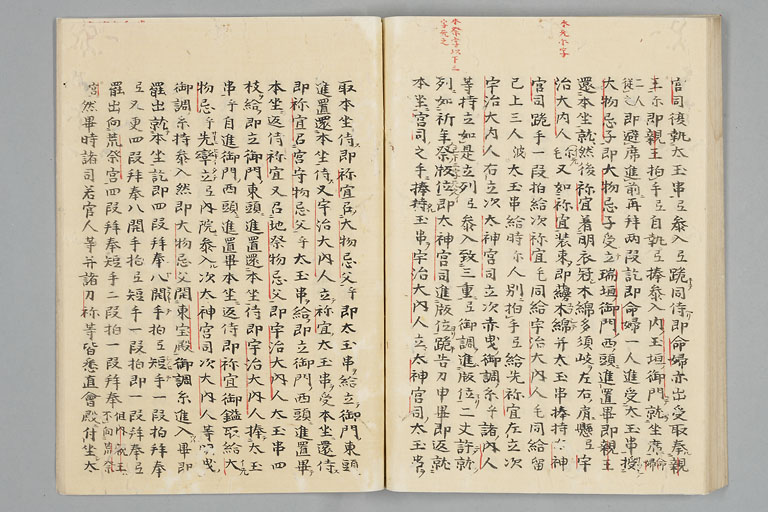 官司後執太玉串弖参入弖跪同侍即命婦亦出受取奉親
王即親王拍手弖自執弖捧参入内玉垣御門就坐席命婦
二人即避席進前再拝両段訖即命婦一人進受太玉串授
大物忌子即大物忌子受立瑞垣御門西頭進置畢即親王
還本坐就然後祢宜着明衣冠木綿多須岐左右肩懸弖宇
治大内人毛又如祢宜装束即縵木綿并太玉串捧持太神
宮司跪手一段拍給次祢宜毛同給宇治大内人毛同給留
已上三人波太玉串給時亦人別拍手弖給先祢宜左立次
宇治大内人右立次太神宮司立次赤曳御調糸乎諸内人
等持立如是立列弖参入致三重弖御調進版位二丈許就
列如祈年祭版位即太神宮司進版位跪告刀申畢即返就
本坐宮司之手捧持玉串宇治大内人立太神宮司太玉串
取本坐侍即祢宜召大物忌父乎即太玉串給立御門東頭
進置還本坐侍又宇治大内人立祢宜太玉串受本坐還侍
即祢宜召宮守物忌父乎太玉串給即立御門西頭進置畢
本坐侍祢宜又召地祭物忌父即宇治大内人太玉串四
枝給即立御門東頭進置還本坐侍即宇治大内人捧太玉
串乎自進御門西頭進置畢本坐返侍即祢宜御鎰取給大
物忌乎先立弖内院参入次太神宮司次大内人等
御調糸持参入然即大物忌父開東宝殿御調糸進入畢即
罷出就本坐訖即四段拝奉八開手拍弖短手一段拍拝奉
弖又更四段拝奉八開手拍弖短手一段拍即一段拝奉弖
罷出向荒祭宮四段拝奉短手二段拍一段拝奉但内親王不向荒祭
宮然畢時諸司若官人等并諸刀祢等皆悉直會殿付坐太
本无尓字
本祭字以下三
字无之